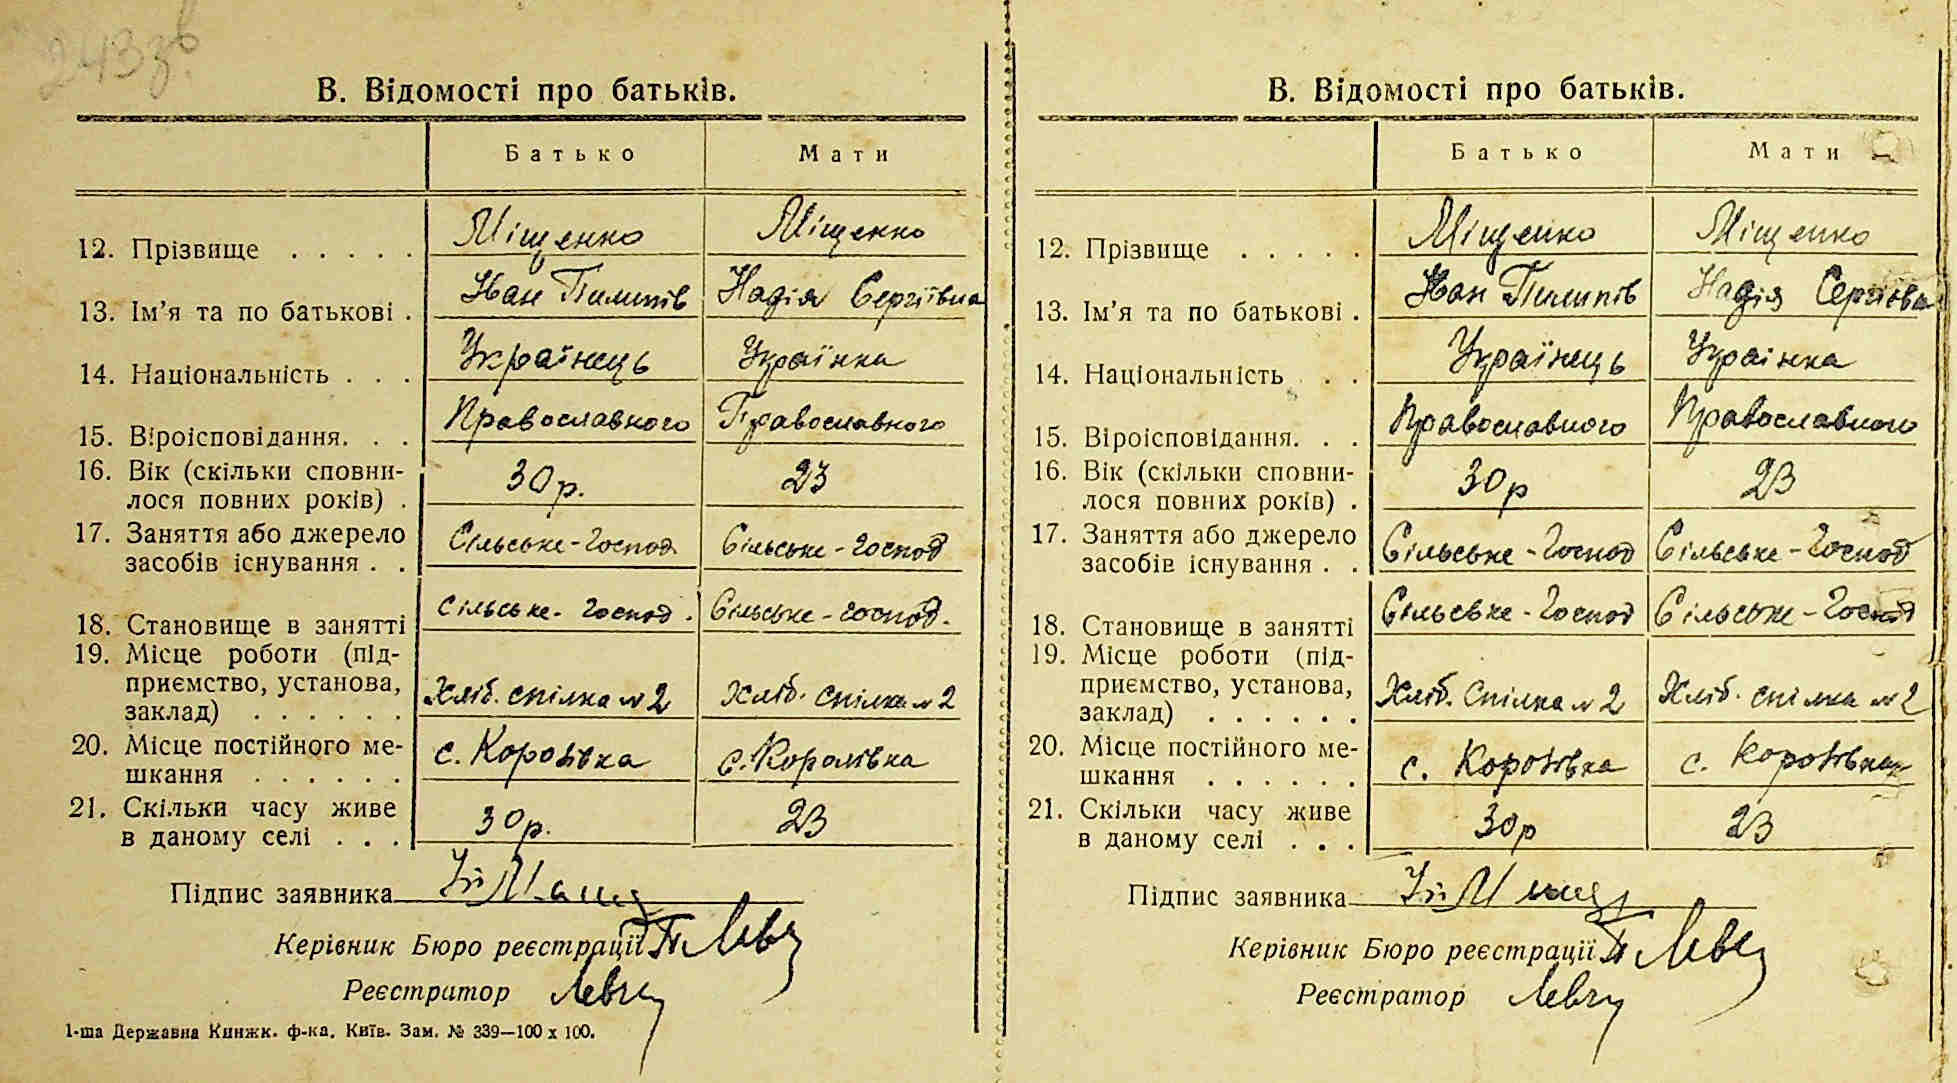 243зв
В. Відомості про батьків.
Батько Мати
12. Прізвище . . . . . Міщенко Міщенко
13. Ім'я та по батькові . Іван Пилипів Надія Сергіївна
14. Національність . . . Українець Українка
15. Віроісповідання. . . Православного Православного
16. Вік (скільки сповни-
лося повних років) . 30р. 23
17. Заняття або джерело
засобів існування . . Сільське-Господ Сільське-Господ
18. Становище в занятті Сільське-Господ. Сільське-Господ.
19. Місце роботи (під-
приємство, установа,
заклад) . . . . . . Хліб. спілка №2 Хліб. спілка №2
20. Місце постійного ме-
шкання . . . . . . с. с.
21. Скільки часу живе
в даному селі . . . 30р. 23
Підпис заявника
Керівник Бюро реєстрації
Реєстратор
1-ша Державна Книжк. ф-ка. Київ. Зам. № 339—100 х 100.
В. Відомості про батьків.
Батько Мати
12. Прізвище . . . . . Міщенко Міщенко
13. Ім'я та по батькові . Іван Пилипів Надія Сергієвна
14. Національність . . Українець Українка
15. Віроісповідання. . . Православного Православного
16. Вік (скільки сповни-
лося повних років) . 30р 23
17. Заняття або джерело
засобів існування . . Сільське-Господ Сільське-Господ
18. Становище в занятті Сільське-Господ Сільське-Господ
19. Місце роботи (під-
приємство, установа,
заклад) . . . . . . Хліб. Спілка №2 Хліб. спілка №2
20. Місце постійного ме-
шкання . . . . . . с. с.
21. Скільки часу живе
в даному селі . . . 30р 23
Підпис заявника
Керівник Бюро реєстрації
Реєстратор